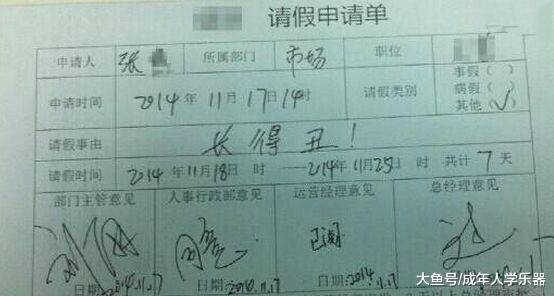 请假申请单
申请人 张 所属部门 市场 职位
申请时间 2014年11月17日14时 请假类别 事假( ) 病假( ) 其他(√)
请假事由 长得丑!
请假时间 2014年11月18日 时——2014年11月25日 时 共计 7 天
部门主管意见 人事行政部意见 运营经理意见 总经理意见
已阅
日期:2014.11.17 日期:2014.11.17 日期:2014.11.17
大鱼号/成年人学乐器